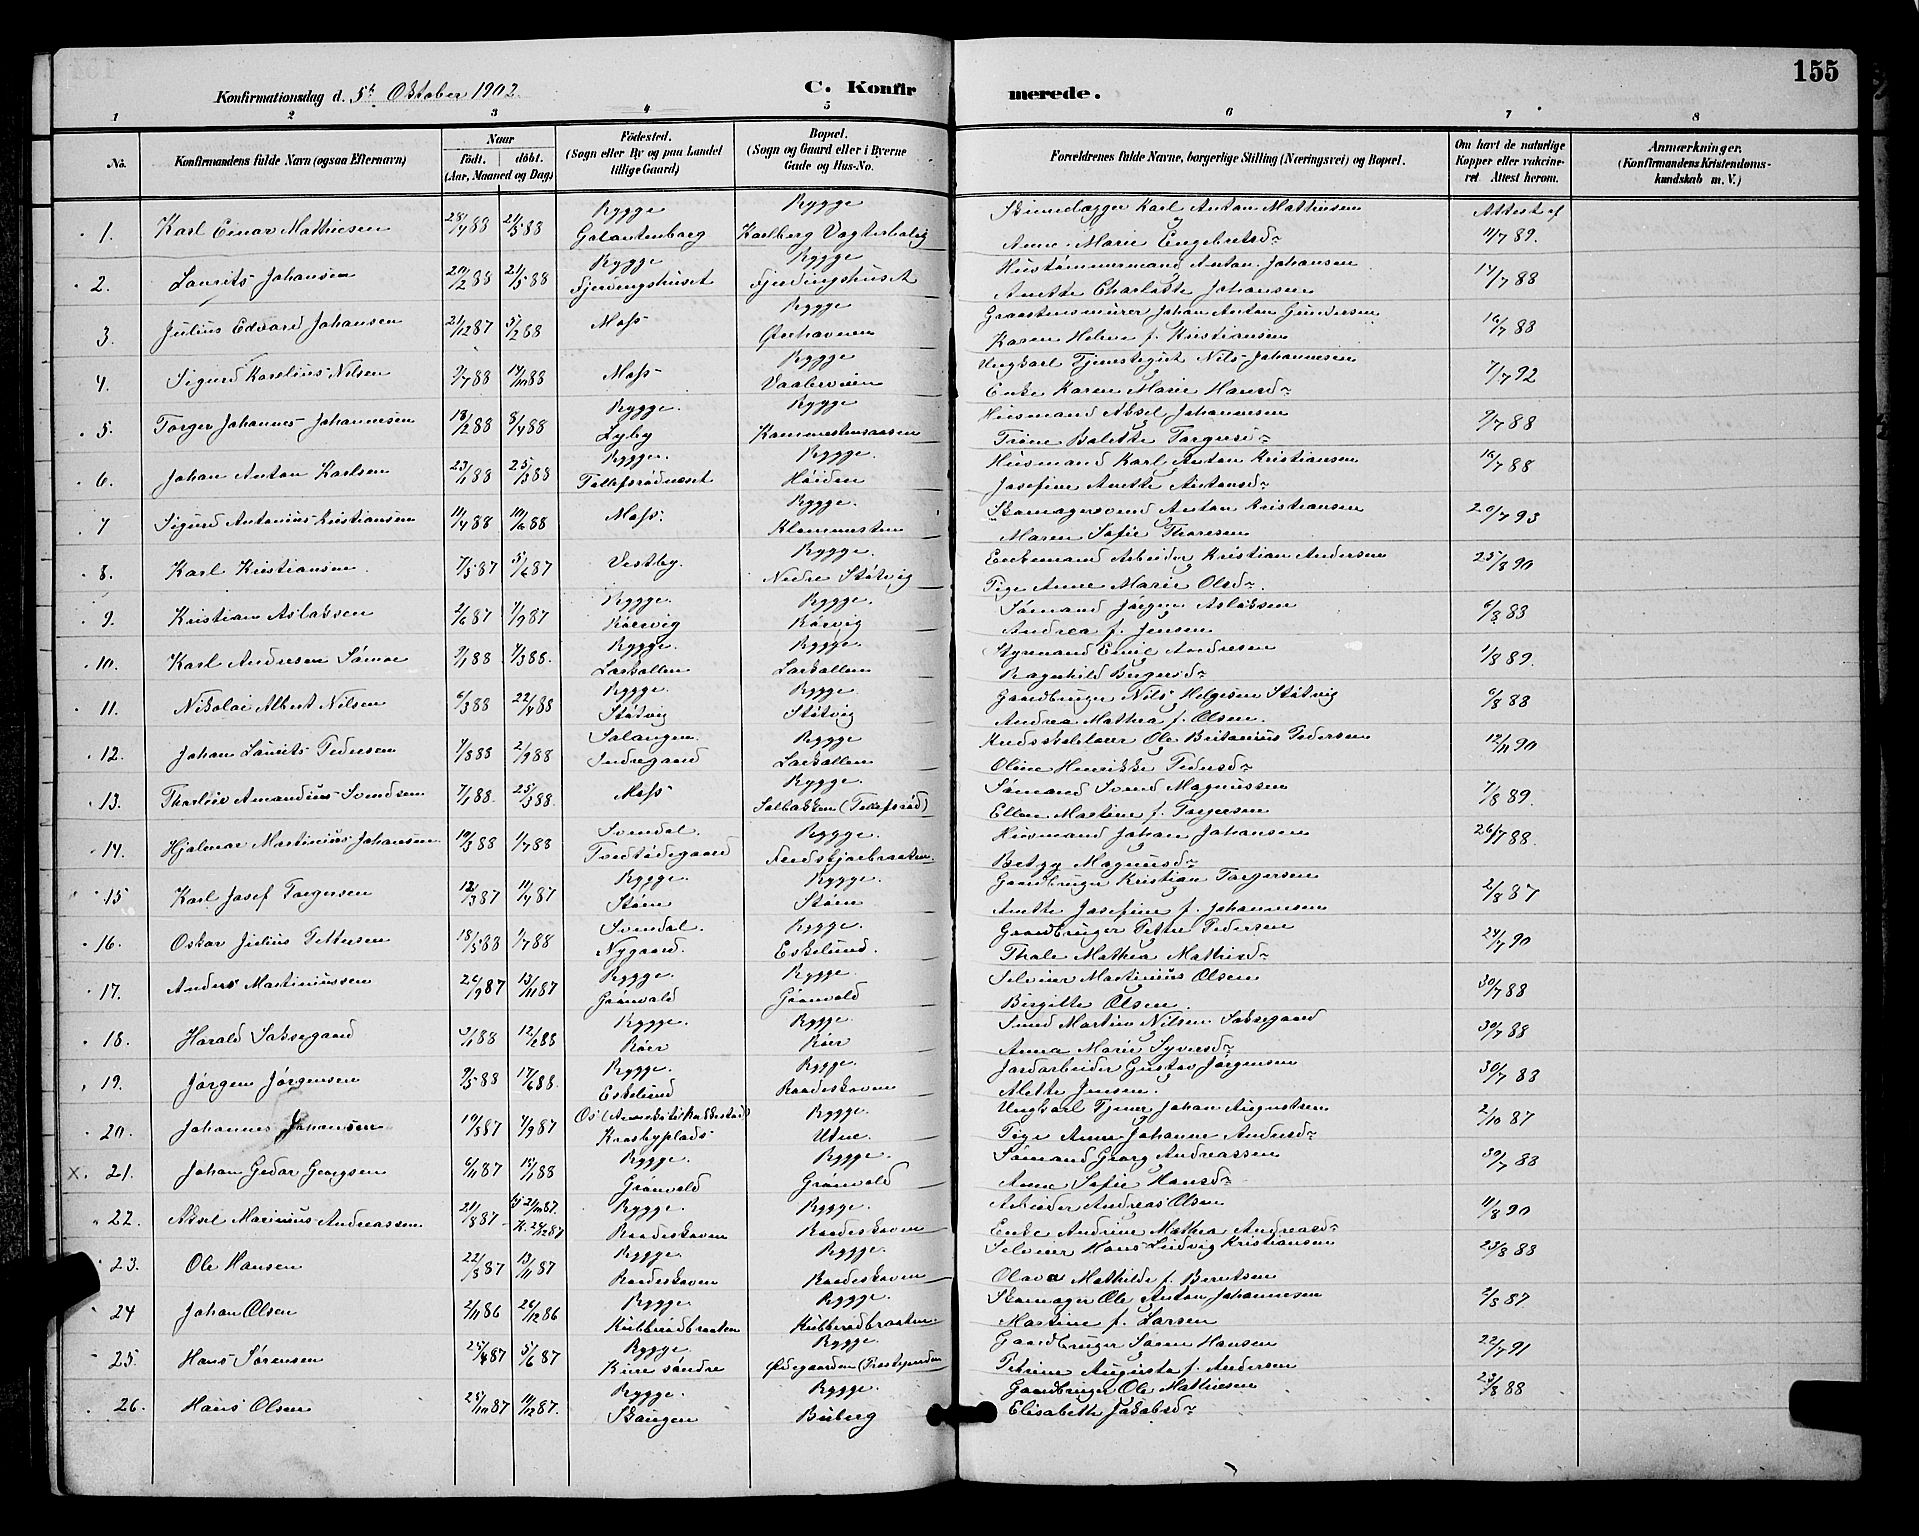 155
Konfirmationsdag d. 5t Oktober 1902. C. Konfir merede.
1 2 3 4 5 6 7 8
No. Konfirmandens fulde Navn (ogsaa Efternavn) Naar födt. döbt. (Aar, Maaned og Dag) Födested. (Sogn eller By og paa Landet tillige Gaard) Bopæl. (Sogn og Gaard eller i Byerne Gade og Hus-No. Forældrenes fulde Navne, borgerlige Stilling (Næringsvei) og Bopæl. Om havt de naturlige Kopper eller vakcineret Attest herom. Anmærkninger. (Konfirmandens Kristendomskundskab m. V.)
Rygge Rygge Karl Anton Mathiesen Attest af
1. Karl Einar Mathiesen 28/4 88 21/5 88 Karlberg Vagterbolig Anne Marie Engebretsd. 11/7 89.
Rygge Rygge Hustømmermand Anton Johansen
2. Laurits Johansen 20/2 88 21/5 88 Fjerdingshuset Fjerdingshuset Anette Charlotte Johansen 14/7 88
Rygge Graastensmurer Johan Anton Gundersen
3. Julius Edvard Johansen 21/12 87 5/2 88 Moss Ørehavnen Karen Helene f. Kristiansen 16/7 88
Rygge Ungkarl Tjenestegut Nils Johannesen
4. Sigurd Karelius Nilsen 9/7 88 14/10 88 Moss Vaalerveien Enke Karen Marie Hansd. 7/7 92
Rygge. Rygge Husmand Aksel Johannesen
5. Torger Johannes Johannesen 18/2 88 8/4 88 Lyby Trine Balette Torgersd. 9/7 88
Rygge. Rygge. Husmand Karl Anton Kristiansen
6. Johan Anton Karlsen 23/1 88 25/3 88 Tollefsrødnæset Høiden Josefine Anette Antonsd. 16/7 88
Rygge. Skomagersvend Anton Kristiansen
7 Sigurd Antonius Kristiansen 11/4 88 10/6 88 Moss. Klommesten Maren Sofie Thoresen 20/7 93
Rygge. Enkemand Arbeider Kristian Andersen
8. Karl Kristiansen. 7/5 87 5/6 87 Vestby. Nedre Støtvig Pige Anne Marie Olsd. 25/8 90
Rygge. Rygge. Sømand Jørgen Aslaksen
9. Kristian Aslaksen 2/6 87 7/9 87 Rørvig Rørvig Andrea f. Jensen 6/8 88
Rygge. Rygge. Styrmand Emil Andresen
10. Karl Andresen Sømoe 9/1 88 4/3 88. Larkollen Larkollen Ragnhild 1/8 89.
Rygge Rygge. Gaardbruger Nils Helgesen Støtvig
11. Nikolai Albert Nilsen 6/3 88 22/4 88 Støtvig Støtvig Andrea Mathea f. Olsen. 6/8 88
Salangen. Rygge Kredsskolelærer Ole Britanius Pedersen
12. Johan Laurits Pedersen 7/8 88 2/9 88 Indregaard Larkollen Oline Henrikke Pedersd. 12/11 90
Rygge. Sømand Svend Magnussen
13. Thorleiv Amandius Svendsen 7/1 88. 25/3 88. Moss Solbakken (Tollefsrød) Ellen Martine f. Torgersen 7/8 89.
Svendal. Rygge. Husmand Johan Johansen
14. Hjalmar Martinius Johansen 10/3 88 1/7 88 Betzy Magnusd. 26/7 88.
Rygge Rygge. Gaardbruger Kristian Torgersen
15 Karl Josef Torgersen 12/3 87 11/4 87 Støm Støm Anette Josefine f. Johannesen 2/8 87
Svendal. Rygge. Gaardbruger Petter Pedersen
16. Oskar Julius Pettersen 18/5 88 1/7 88 Nygaard. Eskelund. Thale Mathea Mathisd. 24/7 90
Rygge. Rygge. Selveier Martinius Olsen
17. Anders Martiniussen 26/9 87 13/11 87 Grønvold Grønvold Birgitte Olsen. 30/7 88
Rygge. Rygge. Smed Martin Nilsen Saksegaard
18. Harald Saksegaard 3/1 88 12/2 88 Røer Røer Anna Marie Syversd. 30/7 88
Rygge. Rygge. Jordarbeider Gustav Jørgensen
19. Jørgen Jørgensen 9/5 88 17/6 88. Eskelund Raadeskoven Alette Jensen. 30/7 88
Os (Anneks til Rakkestad) Rygge. Ungkarl Tjener Johan Augustsen
20. Johannes Johansen 19/8 87 4/9 87 Krosbyplads Utne. Pige Anne Johanne Andersd. 2/10 87
Rygge. Rygge. Sømand Georg Andreassen
X. 21. Johan Gedar Georgsen 6/11 87 15/1 88 Grønvold Grønvold Anne Sofie Hansd. 30/7 88
Rygge. Rygge. Arbeider Andreas Olsen
22. Aksel Marinius Andreassen 21/8 87 Hj. 21/10 87. K. 26/12 87 Raadeskoven Raadeskoven Enke Andrine Mathea Andreasd. 11/8 90
Rygge Rygge. Selveier Hans Ludvig Kristiansen
23. Ole Hansen 22/8 87 13/11 87 Raadeskoven Raadeskoven Olava Mathilde f. Berntsen 23/8 88
Rygge. Rygge. Skomager Ole Anton Johannesen
24 Johan Olsen 2/11 86 26/12 86 Kubberødbraaten Kubberødbraaten. Martine f. Larsen 6/8 87
Rygge. Rygge Gaardbruger Søren Hansen
25. Hans Sørensen 25/4 87 5/6 87 Bure søndre Ødegaarden Petrine Augusta f. Andersen 22/7 91
Rygge. Rygge. Gaardbruger Ole Mathiesen
26. Hans Olsen 25/10 87 11/12 87. Skaugen Buberg Elisabeth Jakobsd. 23/8 88